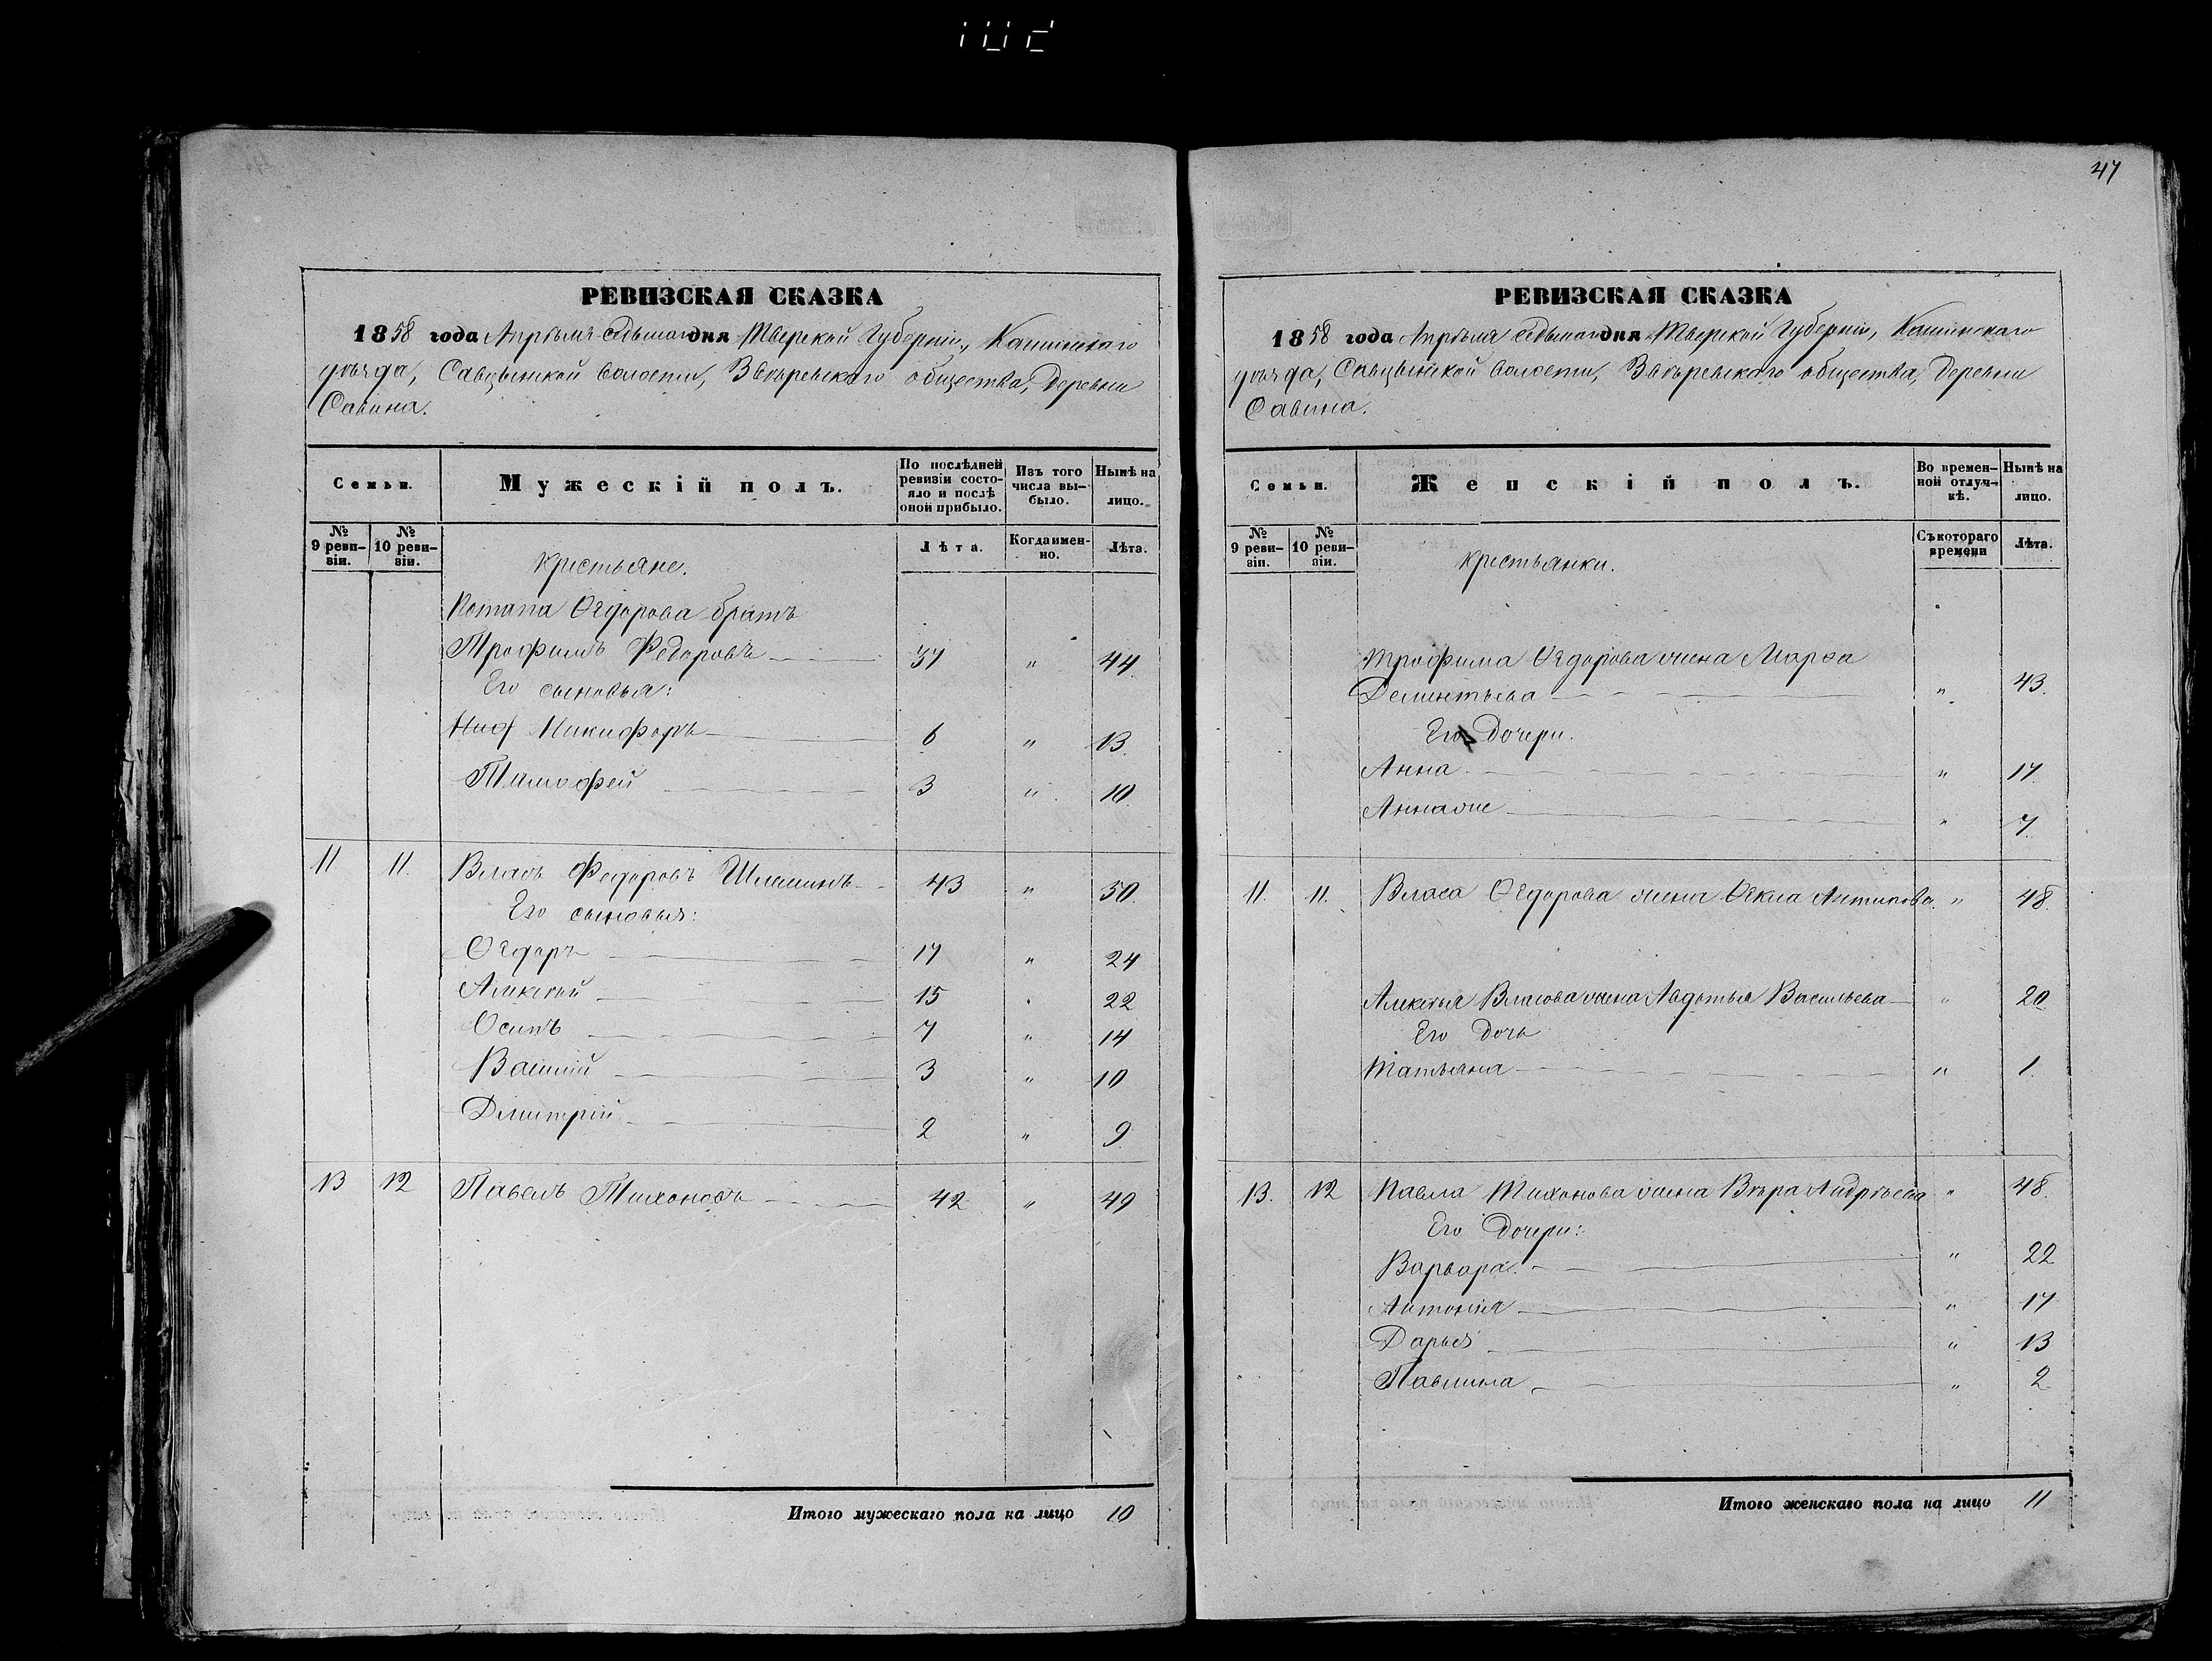 47
РЕВИЗСКАЯ СКАЗКА
1858 года Апрѣля седьмаго дня Тверской Губерніи, Кашинскаго
уѣзда, Савцынской волости, Звѣревскаго общества, Деревни
Савина.
Семьи.
Мужескій полъ.
По послѣдней ревизіи состояло и послѣ оной прибыло.
Изъ того числа выбыло.
Нынѣ на лицо.
№ 9 ревизіи.
№ 10 ревизіи.
Лѣта.
Когда именно.
Лѣта.
Крестьяне.
Потапа Ѳедорова братъ
Трофимъ Федоровъ 37 " 44
Его сыновья:
Никифоръ 6 " 13
Тимофей 3 " 10
11 11. Власъ Федоровъ 43 " 50
Его сыновья:
Ѳедоръ 17 " 24
Алексѣй 15 " 22
Осипъ 7 " 14
Василій 3 " 10
Дмитрій 2 " 9
13 12 Павелъ Тихоновъ 42 " 49
Итого мужескаго пола на лицо 10
РЕВИЗСКАЯ СКАЗКА
1858 года Апрѣля седьмаго дня Тверской Губерніи, Кашинскаго
уѣзда, Савцынской волости, Звѣревскаго общества, Деревни
Савина.
Семьи.
Женскій полъ.
Во временной отлучкѣ.
Нынѣ на лицо.
№ 9 ревизіи.
№ 10 ревизіи.
Съ котораго времени
Лѣта.
Крестьянки.
Трофима Ѳедорова жена Марѳа
Дементьева " 43.
Его Дочери.
Анна " 17
Анна же " 7
11. 11. Власа Ѳедорова жена Ѳекла Антипова " 48
Алексѣя Власова жена Авдотья Васильева " 20
Его Дочь
Татьяна " 1.
13. 12 Павла Тихонова жена Вѣра Андрѣева " 48.
Его Дочери:
Варвара " 22
Антонія " 17
Дарья " 13
" 2
Итого женскаго пола на лицо 11